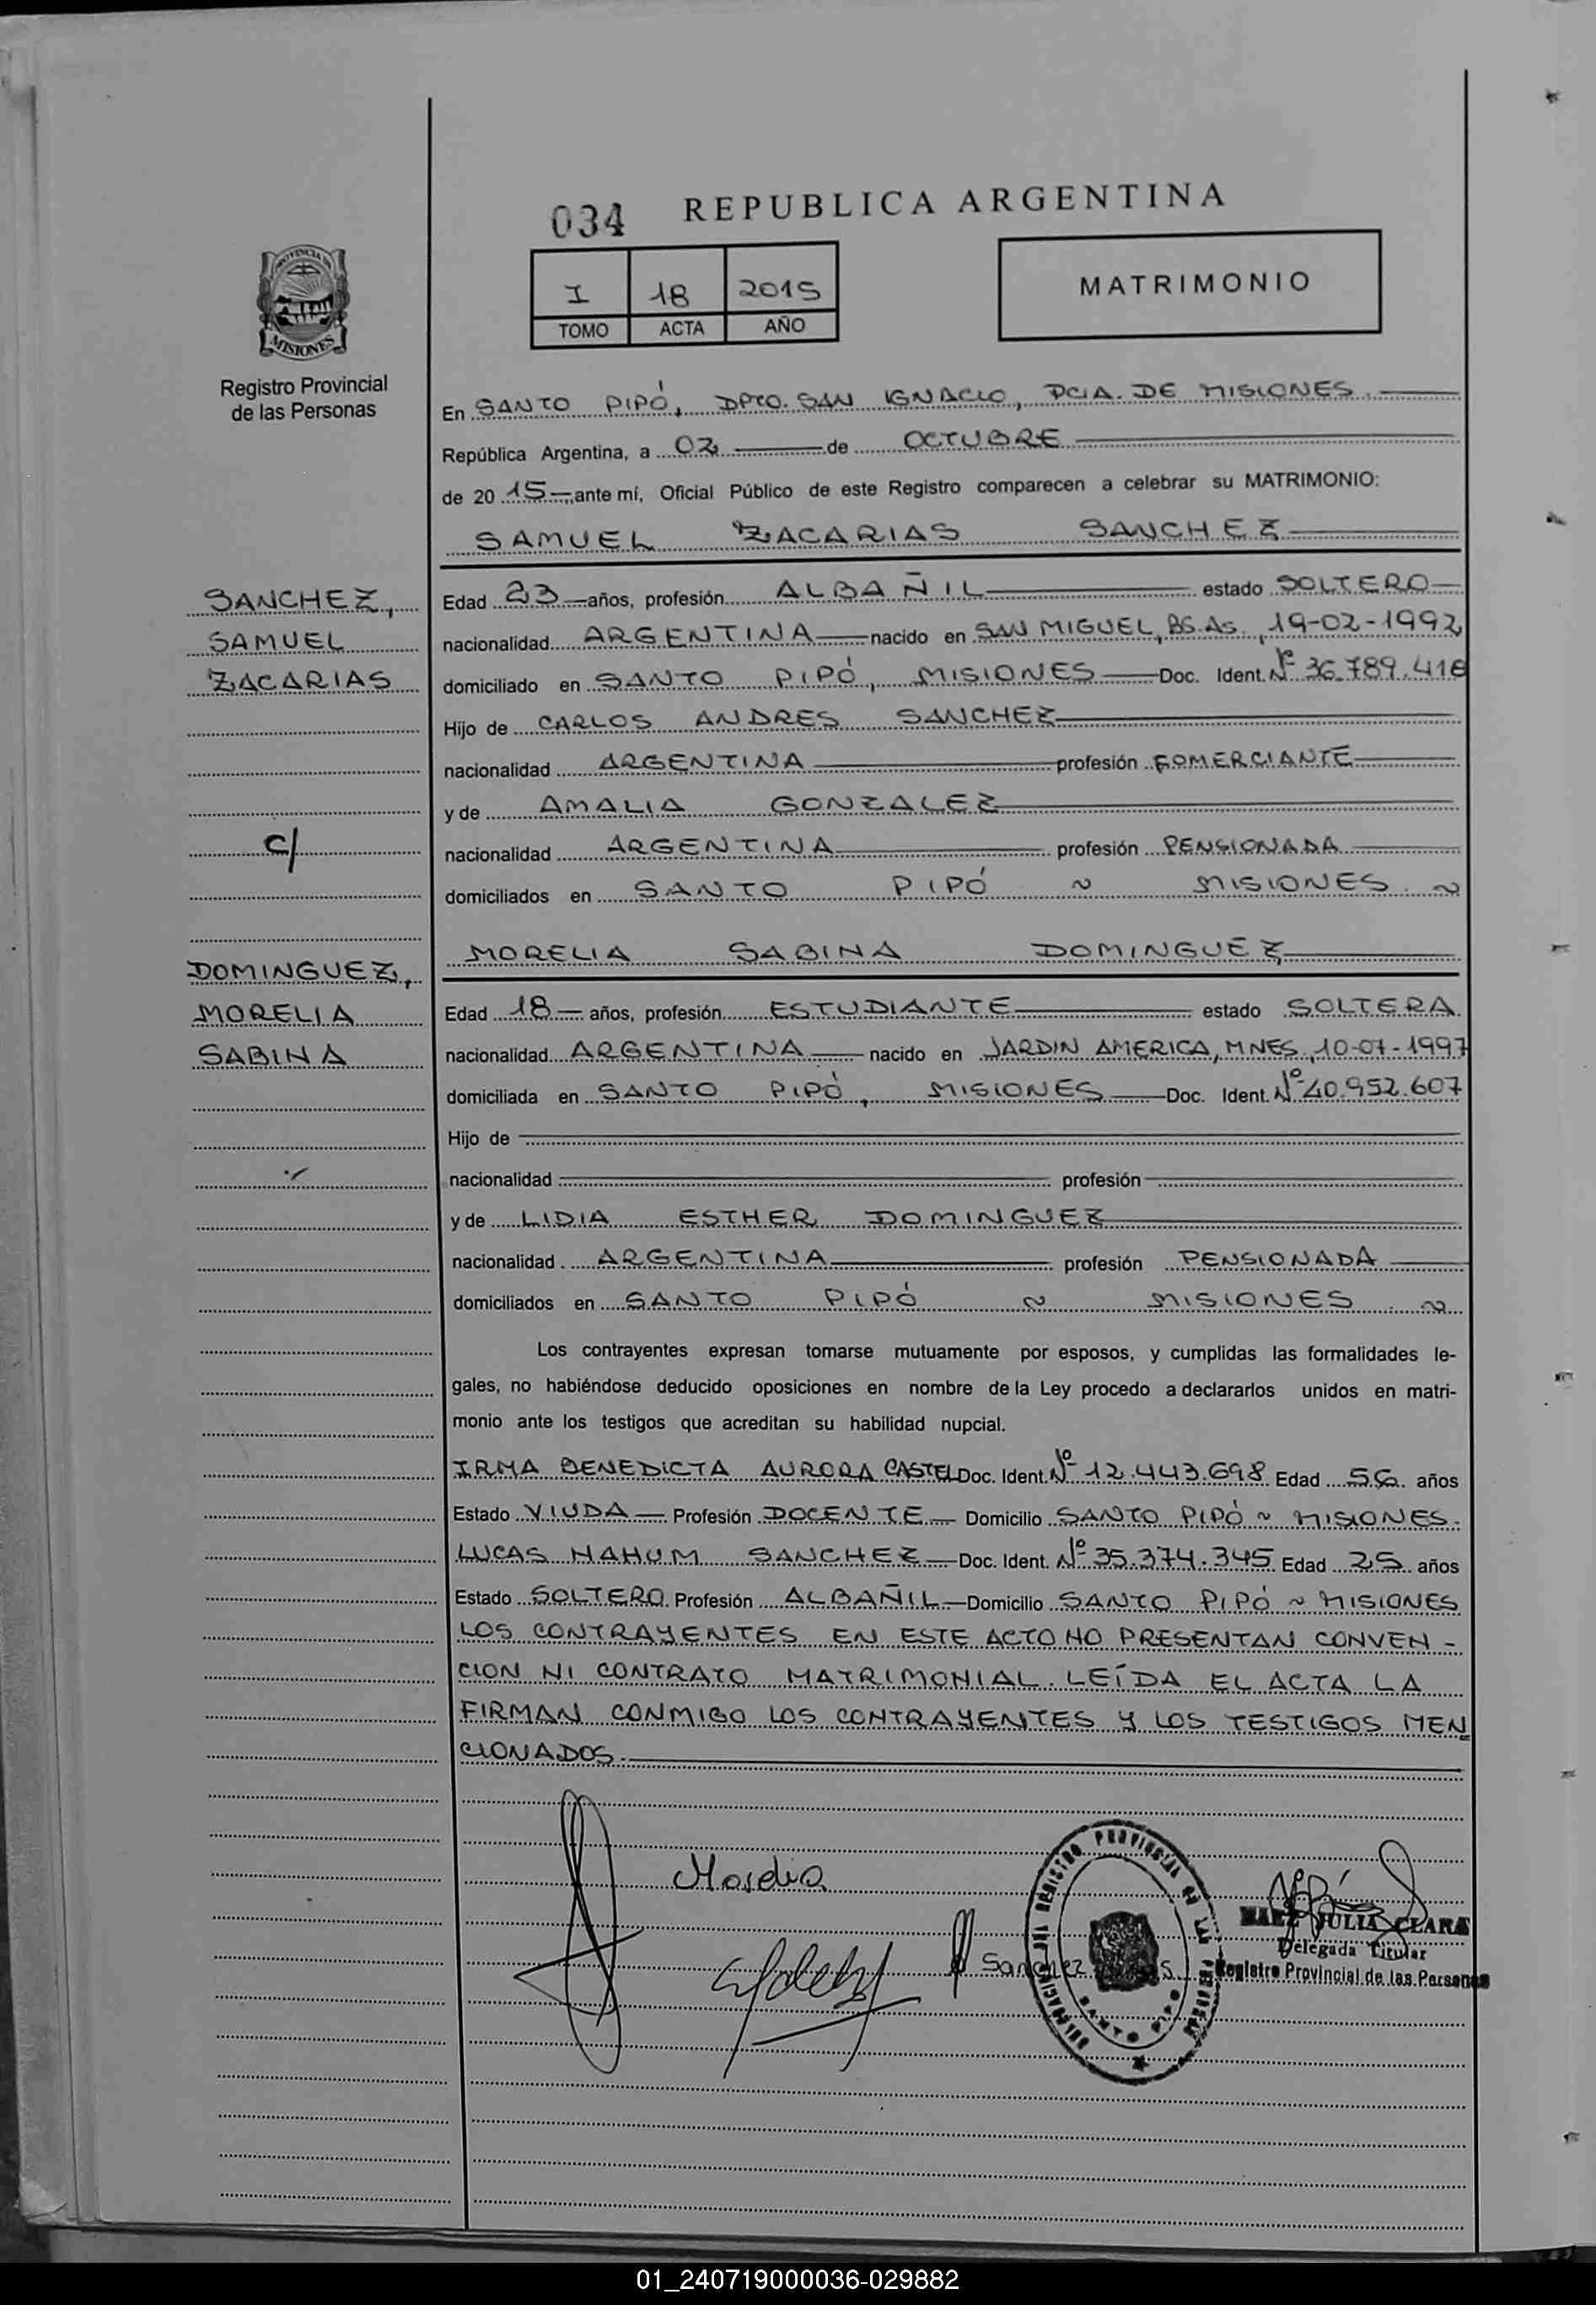 034 REPUBLICA ARGENTINA
I 18 2015
TOMO ACTA AÑO
MATRIMONIO
PROVINCIA DE
MISIONES
Registro Provincial
de las Personas
En SANTO PIPÓ, DPTO. SAN IGNACIO, PCIA. DE MISIONES.
República Argentina, a 02 de OCTUBRE
de 20 15 ante mí, Oficial Público de este Registro comparecen a celebrar su MATRIMONIO:
SAMUEL ZACARIAS SANCHEZ
SANCHEZ,
SAMUEL
ZACARIAS
Edad 23 años, profesión ALBAÑIL estado SOLTERO
nacionalidad ARGENTINA nacido en SAN MIGUEL, BS.AS., 19-02-1992
domiciliado en SANTO PIPÓ, MISIONES Doc. Ident. Nº 36.789.416
Hijo de CARLOS ANDRES SANCHEZ
nacionalidad ARGENTINA profesión COMERCIANTE
y de AMALIA GONZALEZ
c/
nacionalidad ARGENTINA profesión PENSIONADA
domiciliados en SANTO PIPÓ ~ MISIONES. ~
MORELIA SABINA DOMINGUEZ
DOMINGUEZ,
MORELIA
SABINA
Edad 18 años, profesión ESTUDIANTE estado SOLTERA
nacionalidad ARGENTINA nacido en JARDIN AMERICA, MNES, 10-07-1997
domiciliada en SANTO PIPÓ, MISIONES Doc. Ident. Nº 40.952.607
Hijo de
nacionalidad profesión
y de LIDIA ESTHER DOMINGUEZ
nacionalidad ARGENTINA profesión PENSIONADA
domiciliados en SANTO PIPÓ ~ MISIONES. ~
Los contrayentes expresan tomarse mutuamente por esposos, y cumplidas las formalidades le-
gales, no habiéndose deducido oposiciones en nombre de la Ley procedo a declararlos unidos en matri-
monio ante los testigos que acreditan su habilidad nupcial.
IRMA BENEDICTA AURORA CASTEL Doc. Ident. Nº 12.443.698 Edad 56 años
Estado VIUDA Profesión DOCENTE Domicilio SANTO PIPÓ ~ MISIONES.
LUCAS NAHUM SANCHEZ Doc. Ident. Nº 35.374.345 Edad 25 años
Estado SOLTERO Profesión ALBAÑIL Domicilio SANTO PIPÓ ~ MISIONES
LOS CONTRAYENTES EN ESTE ACTO NO PRESENTAN CONVEN-
CION NI CONTRATO MATRIMONIAL. LEÍDA EL ACTA LA
FIRMAN CONMIGO LOS CONTRAYENTES Y LOS TESTIGOS MEN
CIONADOS.
Morelia
Sanchez
REGISTRO PROVINCIAL DE LAS PERSONAS
SANTO PIPO
JULIA CLARA
Delegada Titular
Registro Provincial de las Personas
01_240719000036-029882